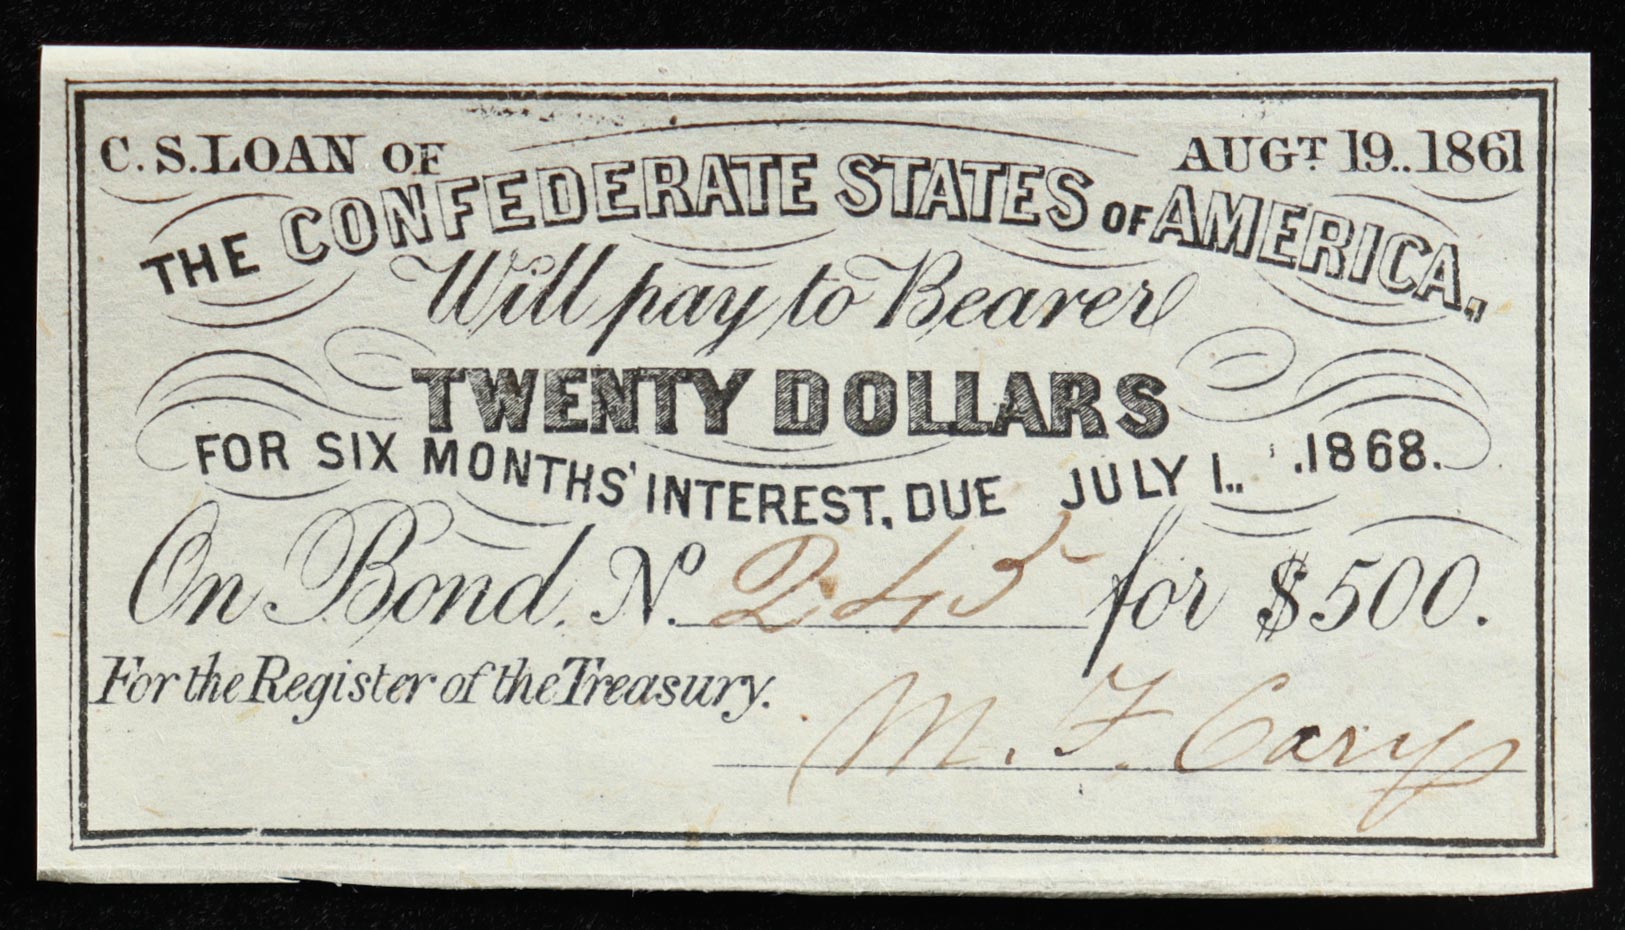 C. S. LOAN OF AUGT 19.. 1861
THE CONFEDERATE STATES OF AMERICA,
Will pay to Bearer
TWENTY DOLLARS
FOR SIX MONTHS' INTEREST, DUE JULY 1.. .1868.
On Bond, No. 245 for $500.
For the Register of the Treasury.
M. F. Cary